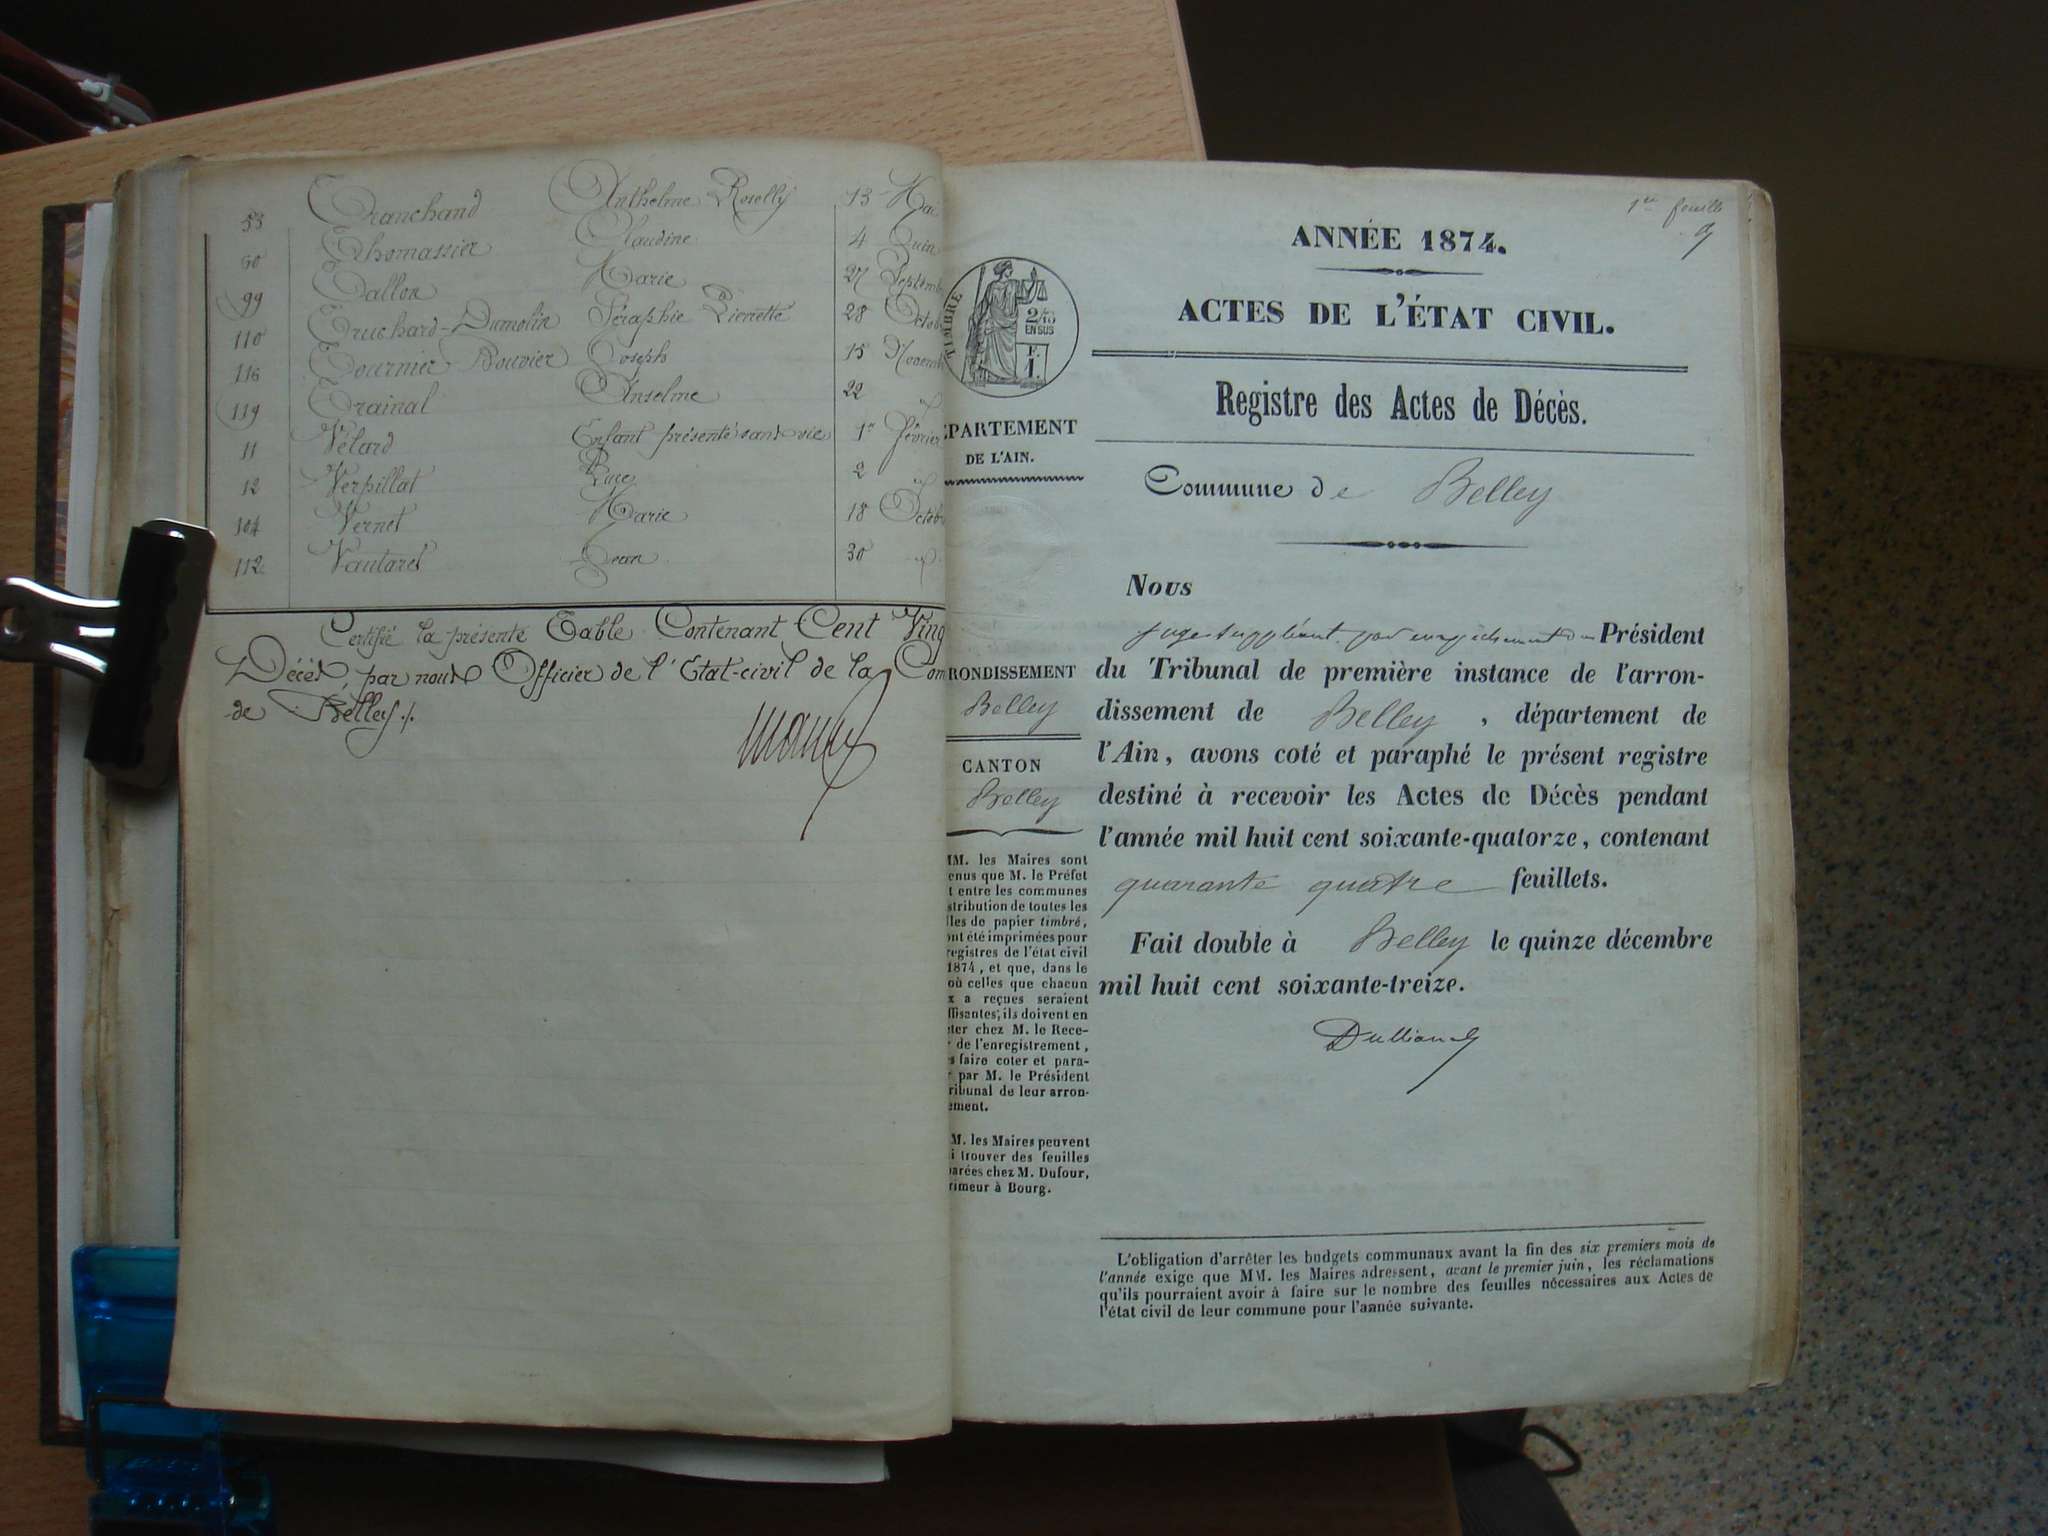 53 Tranchand Anthelme Roselly 13 Mai
60 Thomassier Claudine 4 Juin
99 Tallon Marie 27 Septemb
110 Truchard-Dumolin Séraphie Pierrette 28 Octob
116 Tournier-Bouvier Joseph 15 Novemb
119 Trainal Anselme 22 id
11 Vélard Enfant présenté sans vie 1er Février
12 Verpillat Luce 2 id
104 Vernet Marie 18 Octob
112 Vautaret Jean 30 id
Certifié la présente Table Contenant Cent Ving
Décès par nous Officier de l'Etat-civil de la Com
de Belley ./.
1re feuille
ANNÉE 1874.
ACTES DE L'ÉTAT CIVIL.
TIMBRE
2/10
EN SUS
F.
1.
Registre des Actes de Décès.
PARTEMENT
DE L'AIN.
Commune de Belley
Nous
juge suppléant par empêchement du Président
du Tribunal de première instance de l'arron-
dissement de Belley, département de
l'Ain, avons coté et paraphé le présent registre
destiné à recevoir les Actes de Décès pendant
l'année mil huit cent soixante-quatorze, contenant
quarante quatre feuillets.
Fait double à Belley le quinze décembre
mil huit cent soixante-treize.
RONDISSEMENT
Belley
CANTON
Belley
MM. les Maires sont
enus que M. le Préfet
t entre les communes
stribution de toutes les
lles de papier timbré,
ont été imprimées pour
registres de l'état civil
1874, et que, dans le
où celles que chacun
x a reçues seraient
ffisantes, ils doivent en
eter chez M. le Rece-
r de l'enregistrement,
s faire coter et para-
r par M. le Président
ribunal de leur arron-
ement.
M. les Maires peuvent
i trouver des feuilles
parées chez M. Dufour,
rimeur à Bourg.
L'obligation d'arrêter les budgets communaux avant la fin des six premiers mois de
l'année exige que MM. les Maires adressent, avant le premier juin, les réclamations
qu'ils pourraient avoir à faire sur le nombre des feuilles nécessaires aux Actes de
l'état civil de leur commune pour l'année suivante.